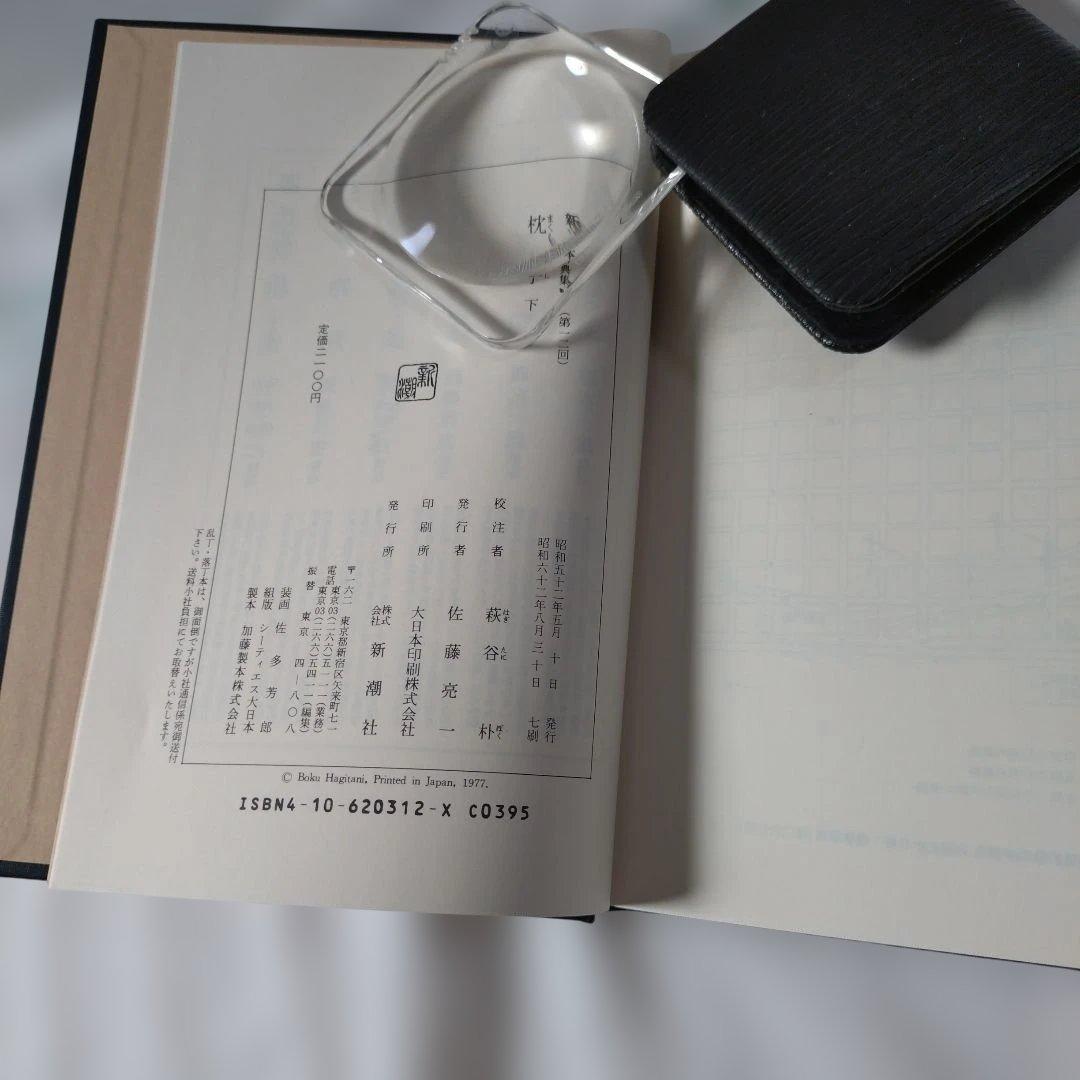 本典集
(第一二回)
枕 下
新潮
定価二一〇〇円
昭和五十二年五月 十 日 発行
昭和六十二年八月三十日 七刷
校注者 萩谷 朴
はぎ たに ぼく
発行者 佐藤亮一
印刷所 大日本印刷株式会社
発行所 株式会社 新潮社
〒一六二 東京都新宿区矢来町七一
電話 東京03(二六六)五一一一(業務)
東京03(二六六)五四一一(編集)
振替 東京 四―八〇八
装画 佐多芳郎
組版 シーティエス大日本
製本 加藤製本株式会社
乱丁・落丁本は、御面倒ですが小社通信係宛御送付
下さい。送料小社負担にてお取替えいたします。
© Boku Hagitani, Printed in Japan, 1977.
ISBN4-10-620312-X C0395